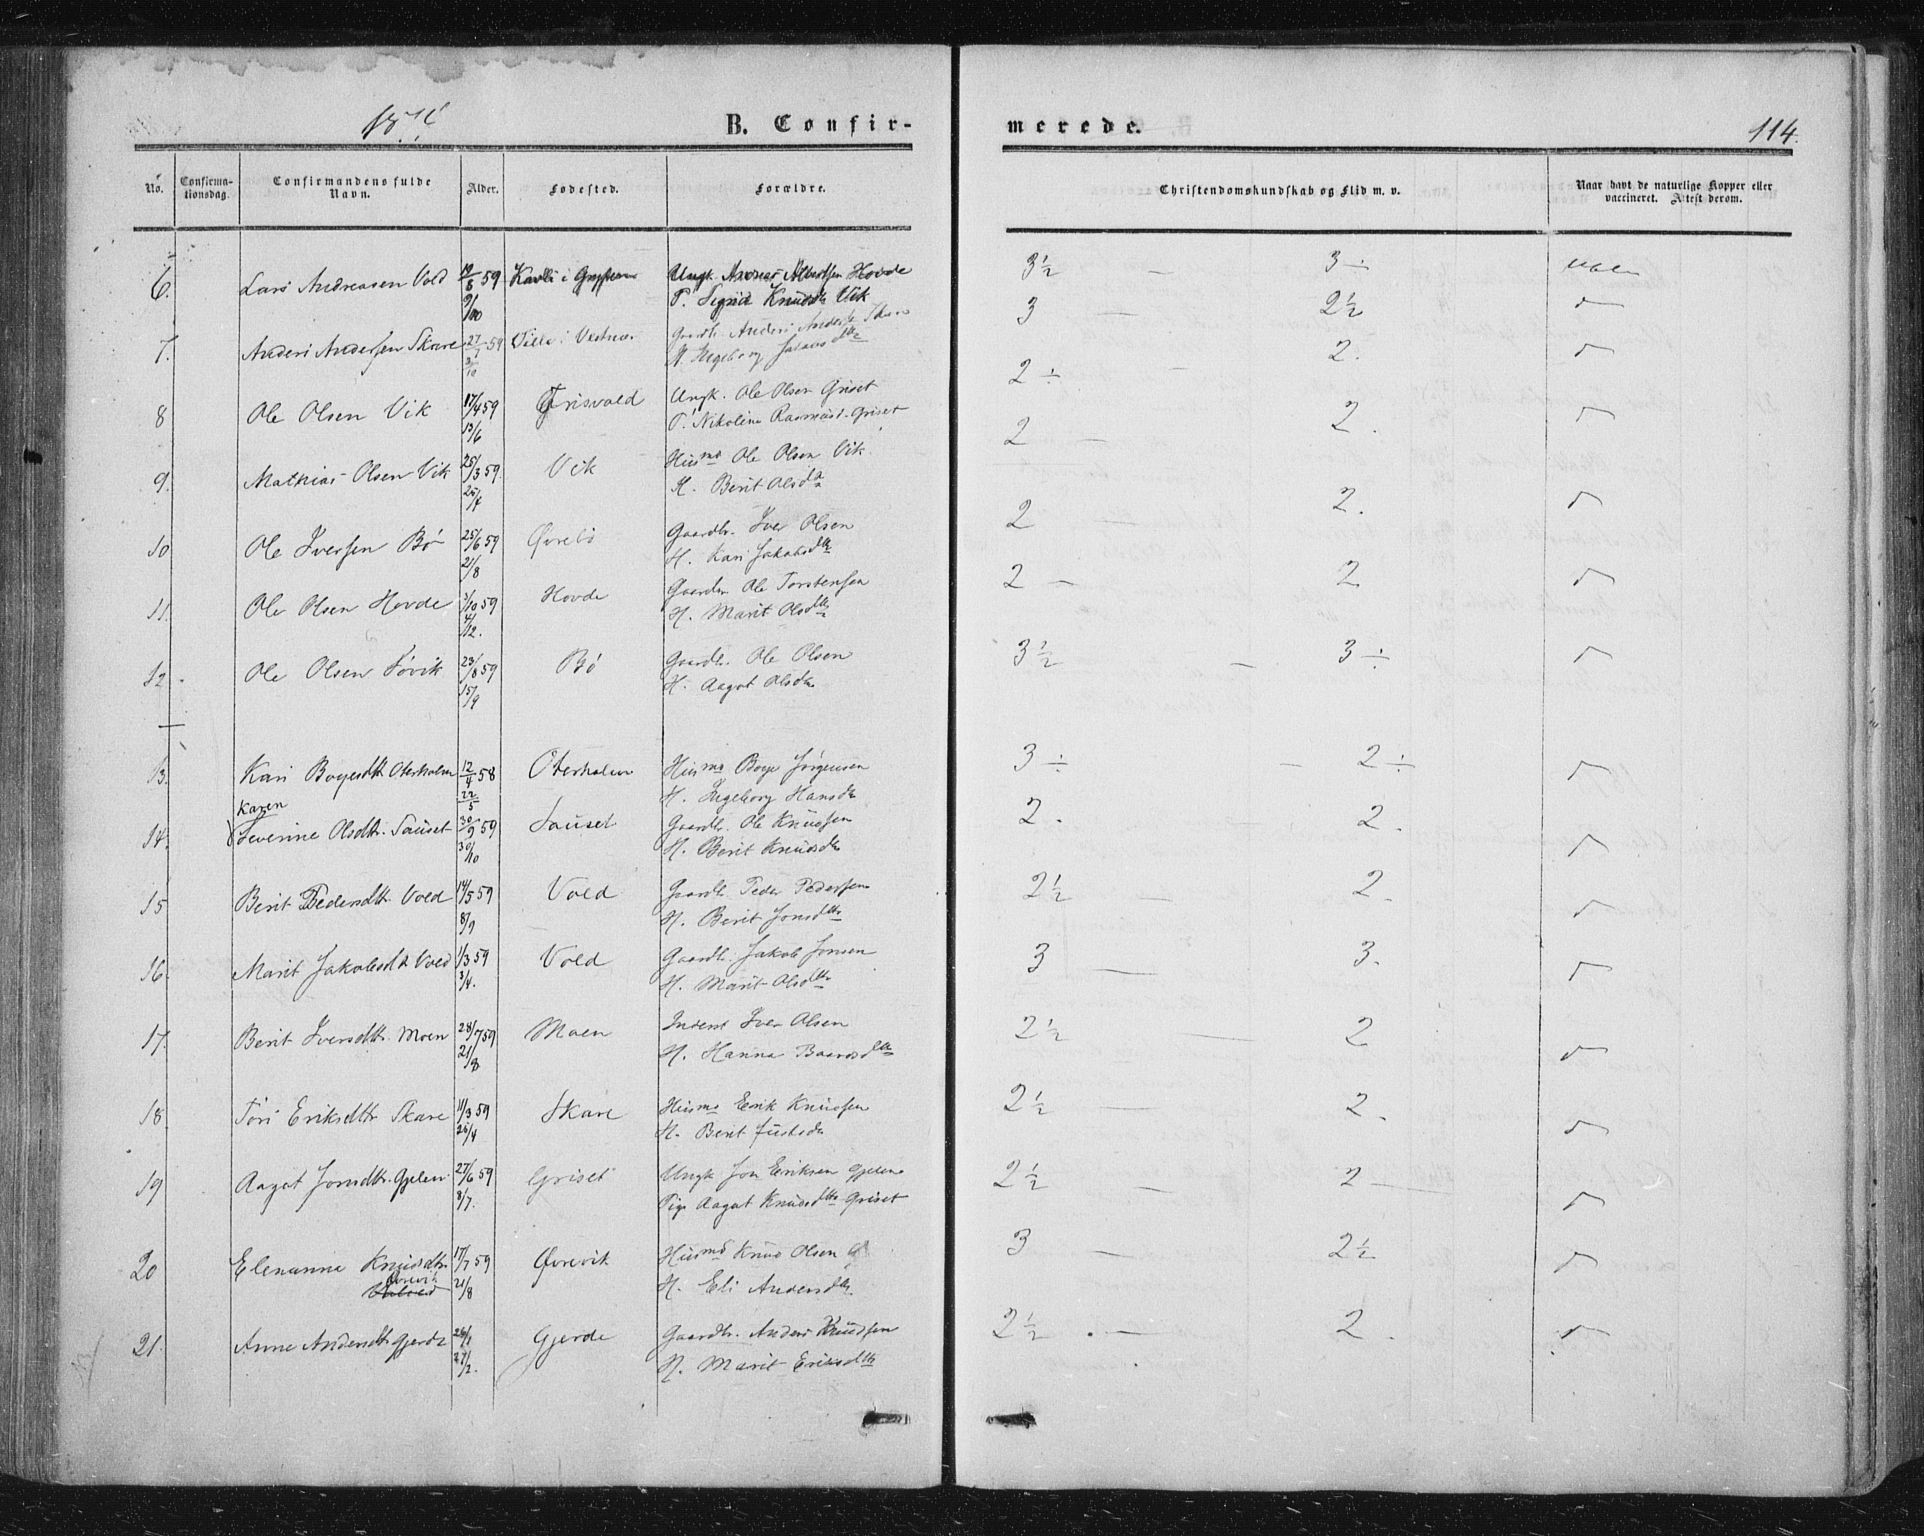 187
B. Confir-
merede.
114.
No.
Confirma-
tionsdag.
Confirmandens fulde
Navn.
Alder.
Fødested.
Forældre.
Christendomskundskab og Flid m. v.
Naar havt de naturlige Kopper eller
vaccineret. Attest derom.
6. Lars Andreasen Vold 59 Ungk. Andreas Albertsen Hovde 3½ — 3 ÷
9/10 P. Sigrid Knudsdtr Vik
7. Anders Andersen Skare 27/7 59 Villa i Vestnes Gaardb. Anders Anders. Skare 3 — 2½
H. Ingeborg dtr
8 Ole Olsen Vik 17/4 59 Grisvold Ungk. Ole Olsen Griset 2 ÷ - 2.
13/6 P. Nikoline Rasmusd. Griset
9. Mathias Olsen Vik 25/3 59. Vik Husmd Ole Olsen Vik. 2 — 2.
H. Berit Olsd
10 Ole Iversen Bø 25/6 59 Øvrebø Gaardbr. Iver Olsen 2 — 2.
21/8 H. Kari Jakobsdtr
11. Ole Olsen Hovde 3/10 59 Hovde Gaardbr. Ole Torstensen 2 — 2
4/12. H. Marit Olsdtr
12. Ole Olsen Søvik 23/8 59 Bø Gaardbr. Ole Olsen 3½ — 3 ÷
15/9 H. Aagot Olsdtr
13. Kari Boyesdtr Oterholm 12/4 58 Oterholm Husmd Boye Jørgensen 3 ÷ — 2 ÷
22/5 H. Ingeborg Hansdr
Karen
14. Severine Olsdtr. Sauset 30/9 59 Sauset Gaardb. Ole Knudsen 2. 2.
30/10 H. Berit Knudsdr
15 Berit Pedersdtr Vold 14/5 59 Vold Gaardb. Peder Pedersen 2½ — 2.
8/9 H. Berit Jonsdtr
16. Marit Jakobsdtr Vold 1/3 59 Vold Gaardb. Jakob Jonsen 3 — 3.
3/4. H. Marit Olsdtr
17. Berit Iversdtr. Moen 28/7 59 Moen Inderst Iver Olsen 2½ — 2
21/8 H. Hanna Baardsdtr
18. Turi Eriksdtr Skare 11/3 59 Skare Husmd Erik Knudsen 2½ — 2.
25/4 H. Berit Justsdr
19 Aagot Jonsdtr. Gjelen 27/6 59 Griset Ungk Jon Eriksen Gjelen 2½ — 2 —
8/7. Pige Aagot Knudsdtr Griset
20 Elenanna Knudsdtr. 17/7 59 Øvrevik Husmd Knud Olsen 3 — 2½
Øvrevik
21/8 H. Eli Andersdtr.
21. Anne Andersdtr Gjerde 26/1 Gjerde Gaardbr. Anders Knudsen 2½ — 2.
27/2. H. Marit Eriksdtr